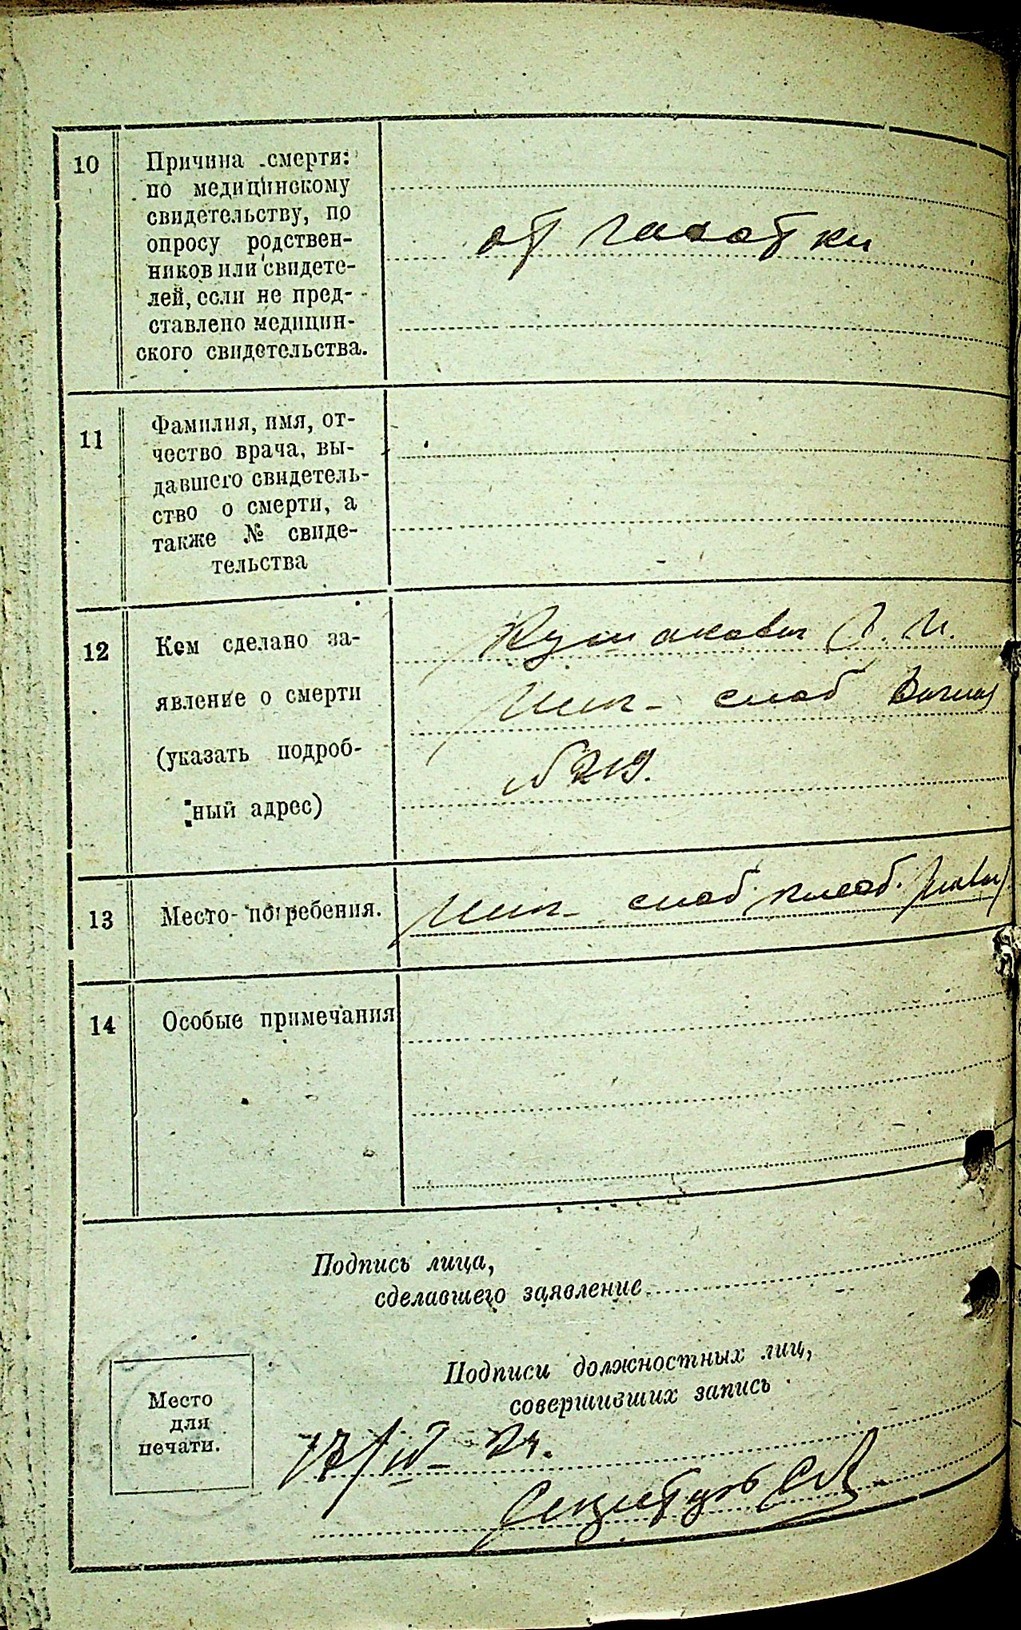 10
Причина смерти:
по медицинскому
свидетельству, по
опросу родствен-
ников или свидете-
лей, если не пред-
ставлено медицин-
ского свидетельства.
от чахотки
11
Фамилия, имя, от-
чество врача, вы-
давшего свидетель-
ство о смерти, а
также № свиде-
тельства
12
Кем сделано за-
явление о смерти
(указать подроб-
ный адрес)
слоб
№ 219.
13
Место погребения.
слоб
14
Особые примечания
Подпись лица,
сделавшего заявление
Подписи должностных лиц,
совершивших запись
Место
для
печати.